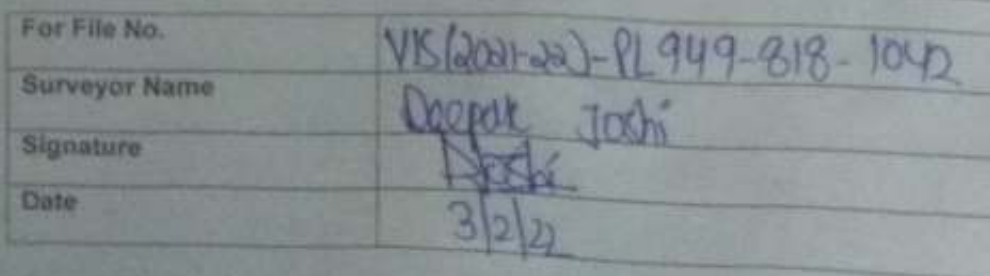 For File No. VIS(2021-22)-PL949-818-1042
Surveyor Name Deepak Joshi
Signature DJoshi
Date 3/2/22